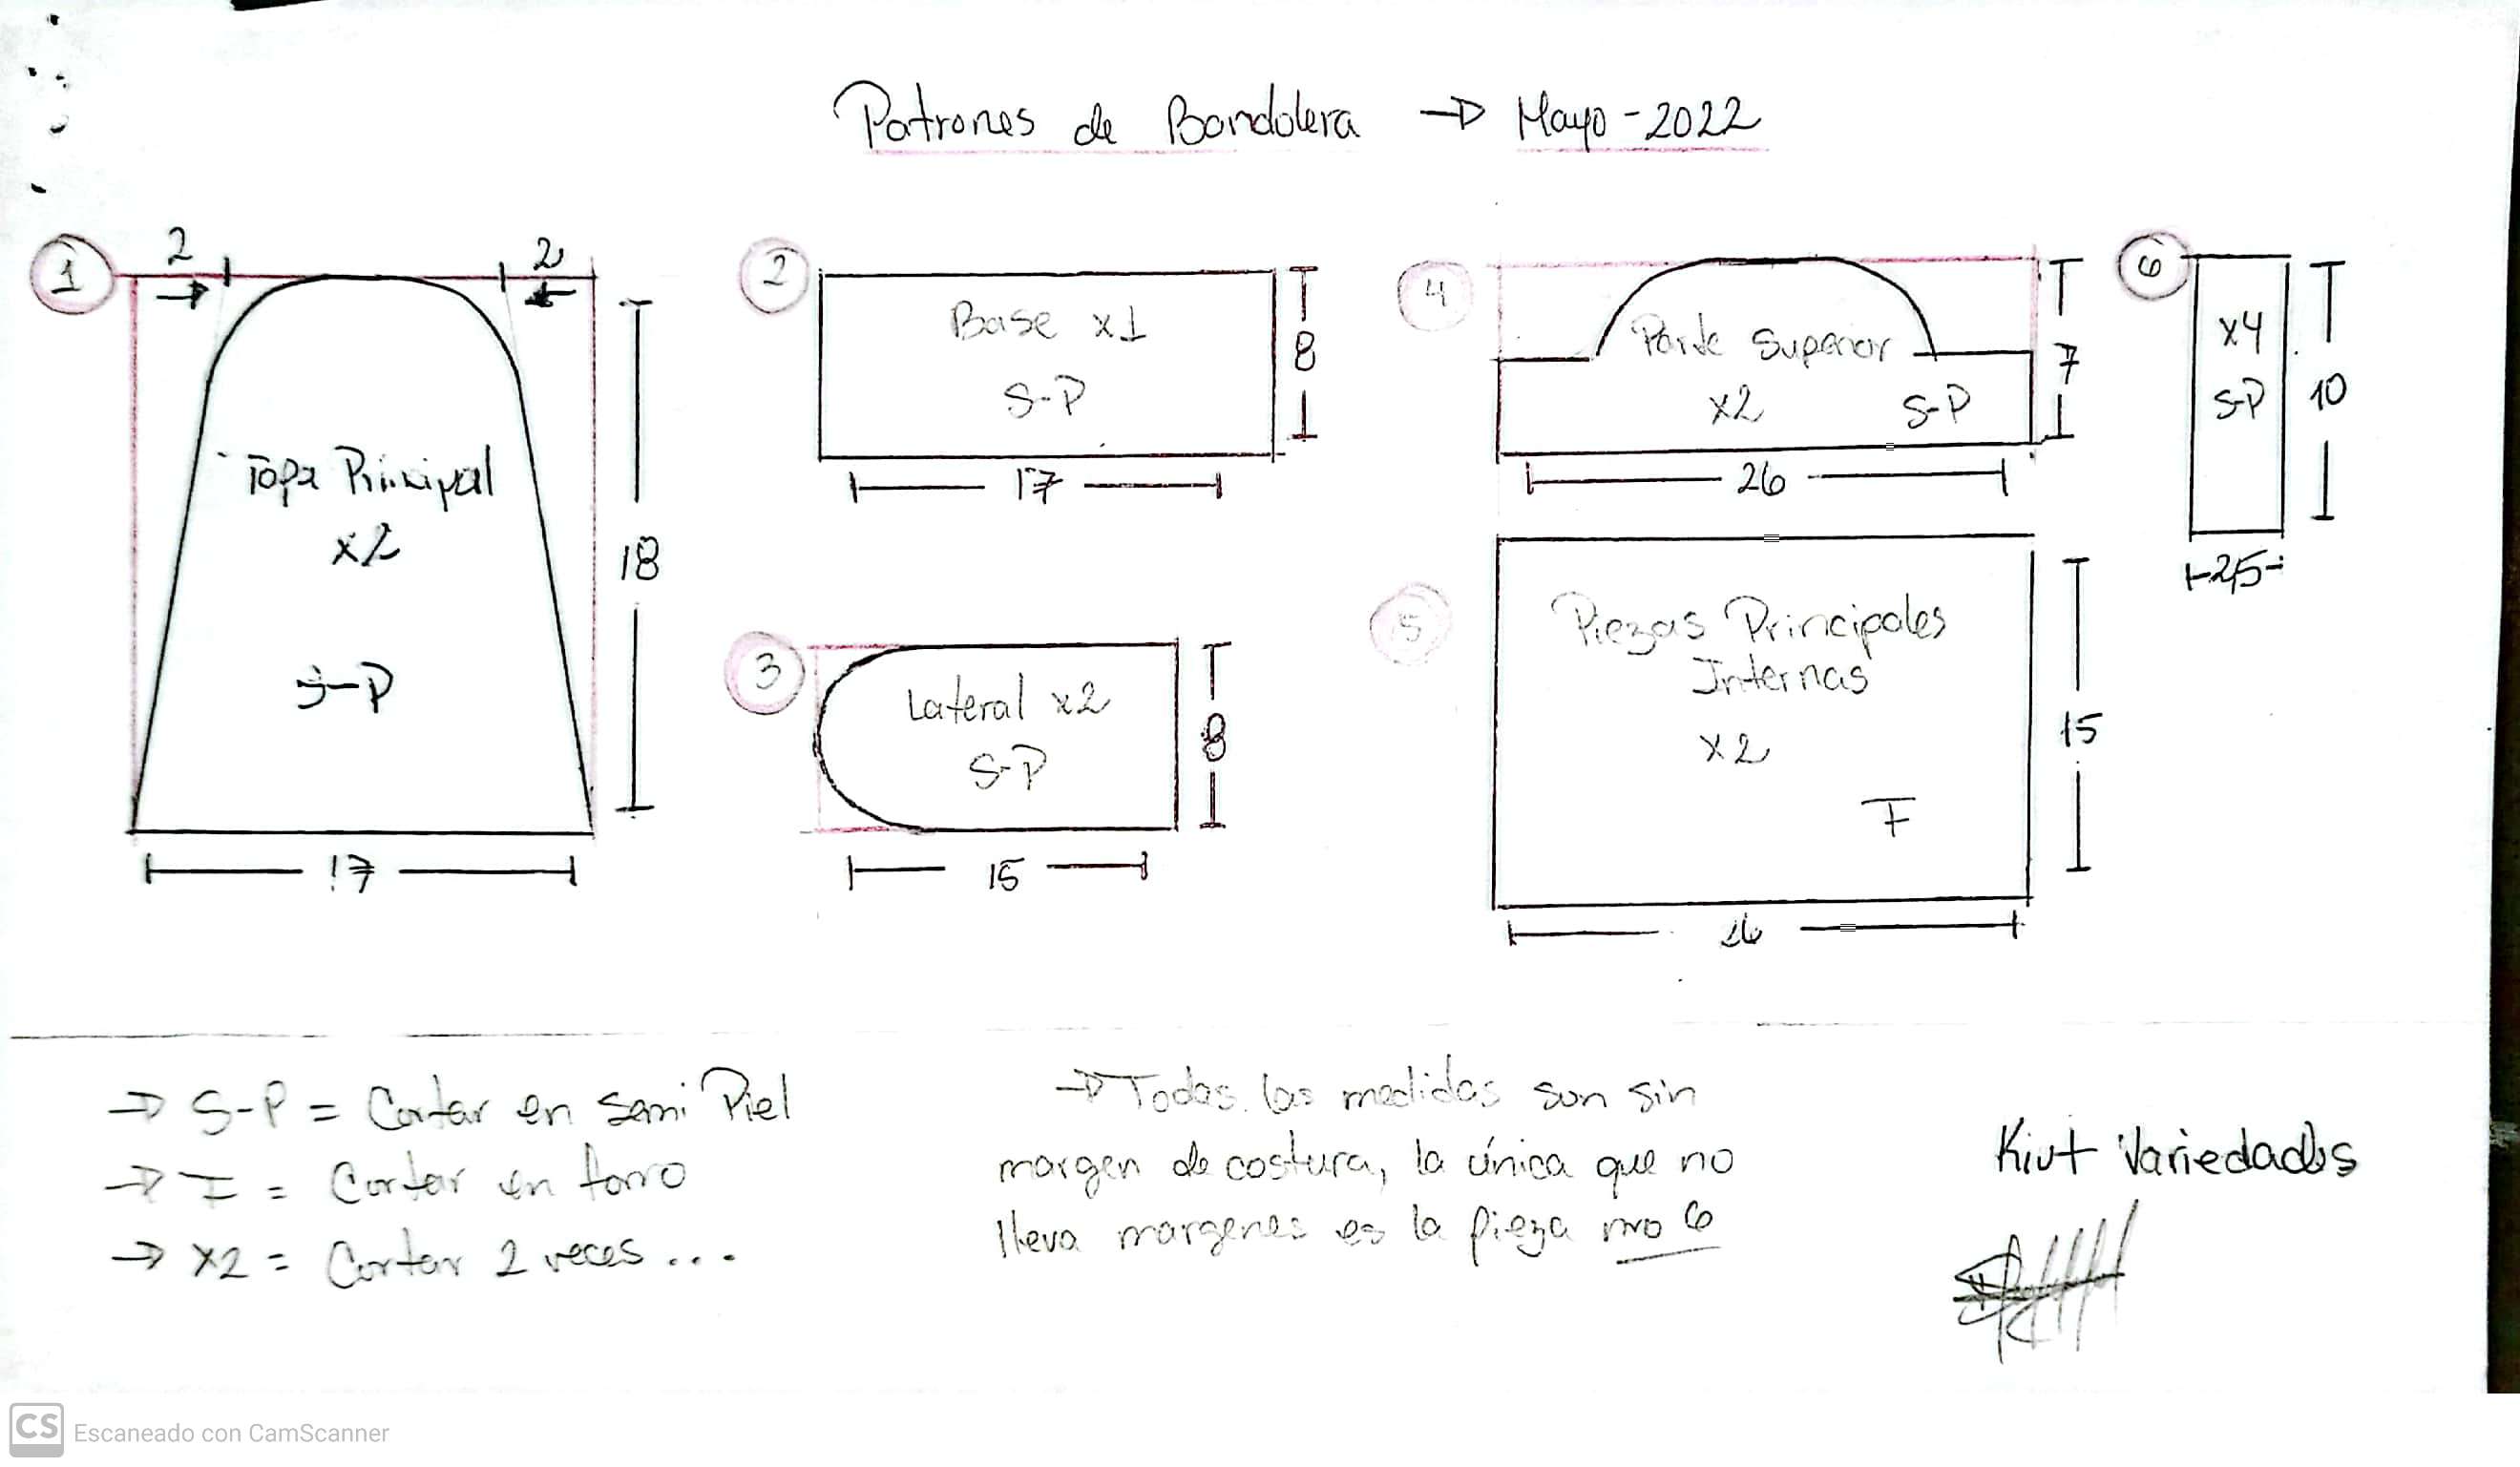 Patrones de Bandolera → Mayo-2022
1
2
2
Tapa Principal
x2
S-P
18
17
2
Base x1
S-P
8
17
3
Lateral x2
S-P
8
15
4
Parte Superior
x2 S-P
7
26
5
Piezas Principales
Internas
x2
F
15
26
6
x4
S-P
10
2,5
→ S-P = Cortar en Semi Piel
→ F = Cortar en forro
→ x2 = Cortar 2 veces...
→ Todas las medidas son sin
margen de costura, la única que no
lleva margenes es la pieza nro 6
Kiut Variedades
CS Escaneado con CamScanner